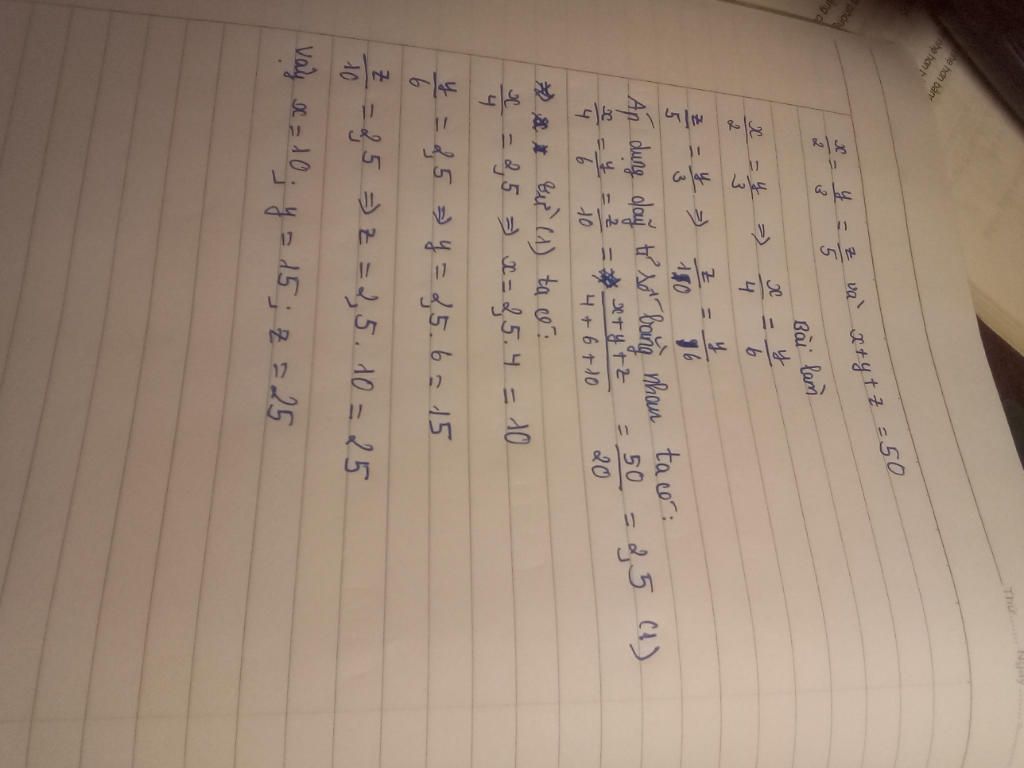 x/2 = y/3 = z/5 và x+y+z = 50
Bài làm
x/2 = y/3 => x/4 = y/6
z/5 = y/3 => z/10 = y/6
Áp dụng dãy tỉ số bằng nhau ta có:
x/4 = y/6 = z/10 = x+y+z/4+6+10 = 50/20 = 2,5 (1)
=> từ (1) ta có:
x/4 = 2,5 => x = 2,5.4 = 10
y/6 = 2,5 => y = 2,5.6 = 15
z/10 = 2,5 => z = 2,5.10 = 25
Vậy x = 10; y = 15; z = 25